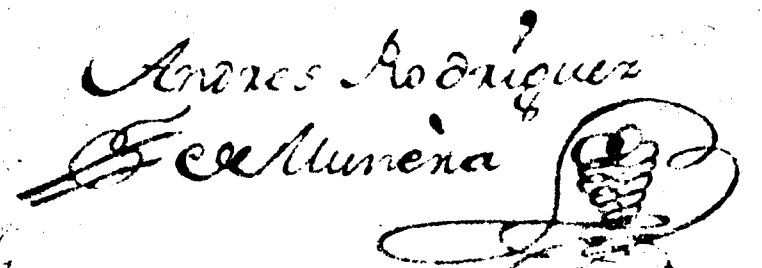 Andres Rodriguez
de Munèna